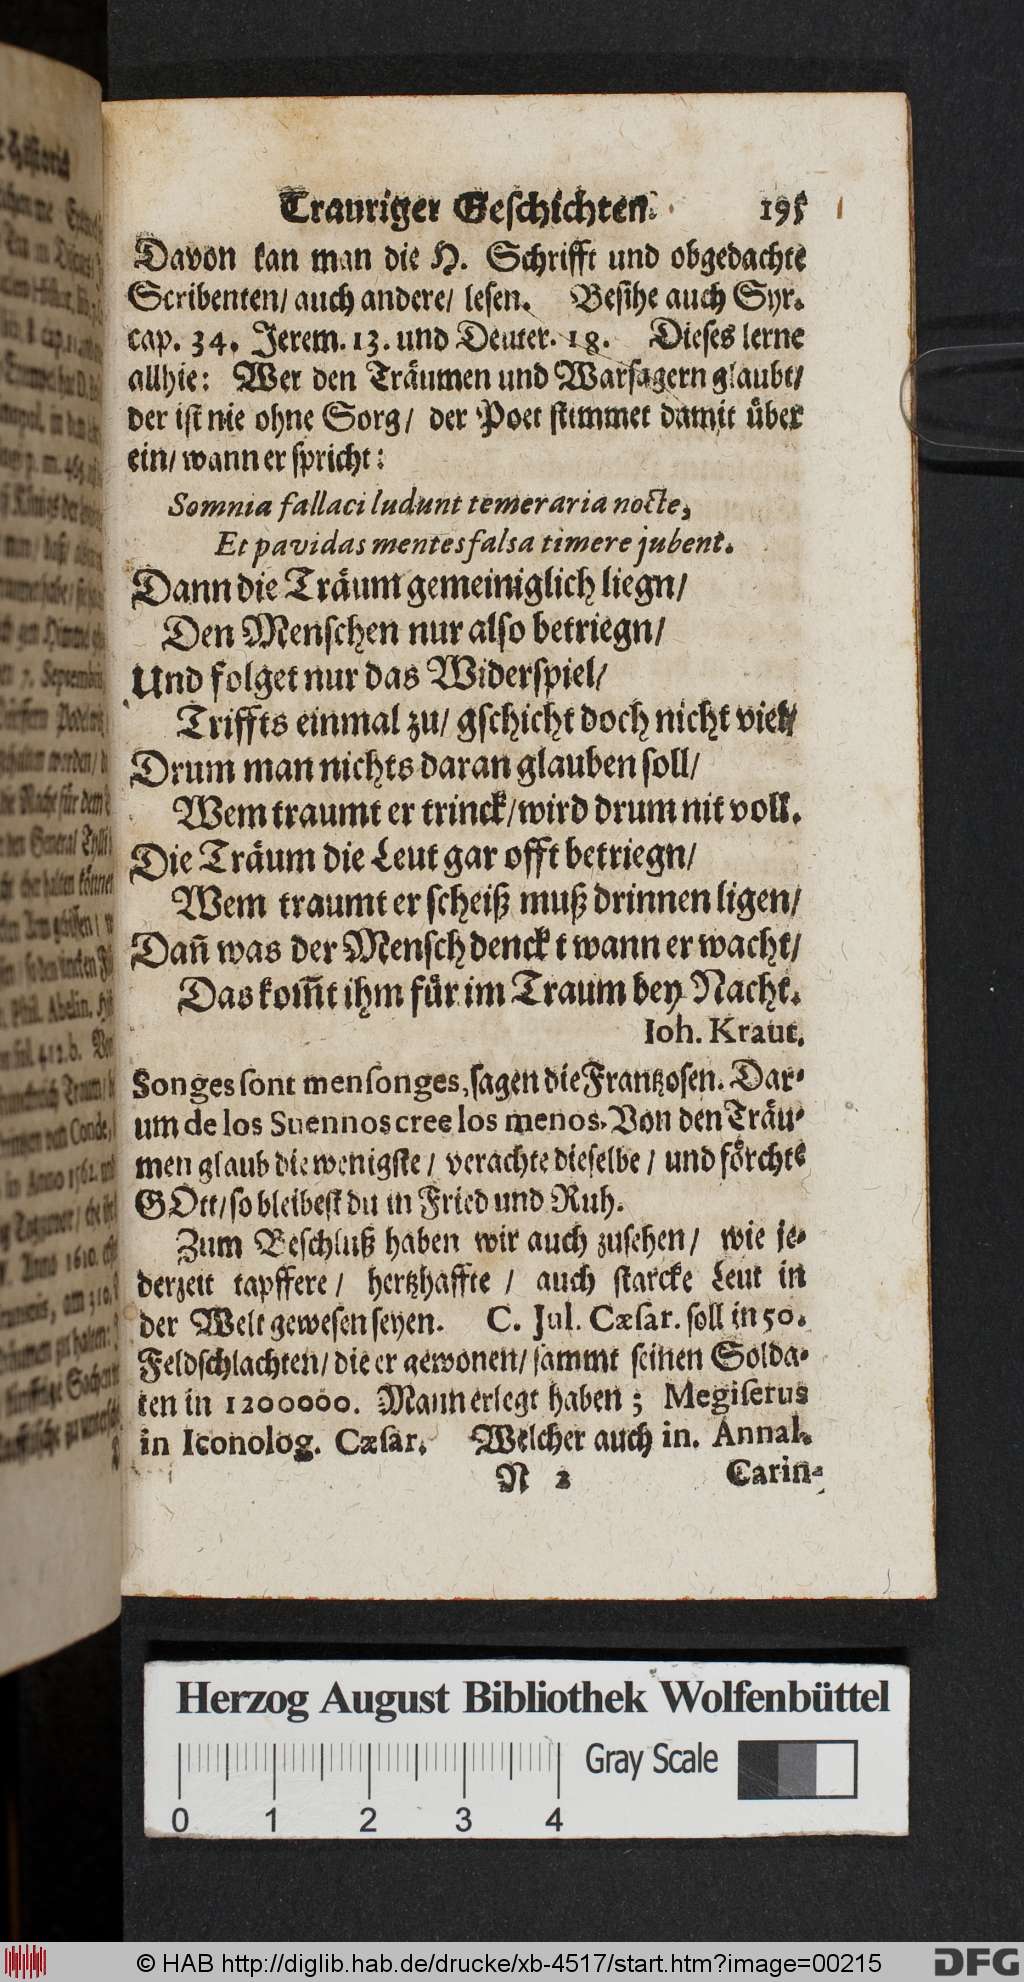 Trauriger Geschichten. 195
Davon kan man die H. Schrifft und obgedachte
Scribenten/ auch andere/ lesen. Besihe auch Syr.
cap. 34. Jerem. 13. und Deuter. 18. Dieses lerne
allhie: Wer den Träumen und Warsagern glaubt/
der ist nie ohne Sorg/ der Poet stimmet damit über
ein/ wann er spricht:
Somnia fallaci ludunt temeraria nocte,
Et pavidas mentes falsa timere jubent.
Dann die Träum gemeiniglich liegn/
Den Menschen nur also betriegn/
Und folget nur das Widerspiel/
Triffts einmal zu/ gschicht doch nicht viel/
Drum man nichts daran glauben soll/
Wem traumt er trinck/ wird drum nit voll.
Die Träum die Leut gar offt betriegn/
Wem traumt er scheiß muß drinnen ligen/
Dañ was der Mensch denckt wann er wacht/
Das kom̃t ihm für im Traum bey Nacht.
Ioh. Kraut.
Songes sont mensonges, sagen die Frantzosen. Dar-
um de los Suennos cree los menos. Von den Träu-
men glaub die wenigste/ verachte dieselbe/ und förchte
GOtt/ so bleibest du in Fried und Ruh.
Zum Beschluß haben wir auch zusehen/ wie je-
derzeit tapffere/ hertzhaffte/ auch starcke Leut in
der Welt gewesen seyen. C. Jul. Cæsar. soll in 50.
Feldschlachten/ die er gewonen/ sammt seinen Solda-
ten in 1200000. Mann erlegt haben; Megiserus
in Iconolog. Cæsar. Welcher auch in. Annal.
N 2 Carin-
Herzog August Bibliothek Wolfenbüttel
Gray Scale
0 1 2 3 4
© HAB http://diglib.hab.de/drucke/xb-4517/start.htm?image=00215
DFG